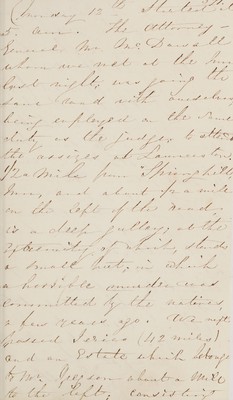 Monday 12th She
5 am. The attorney-
General Mr Mc Dowell
whom we met at the
last night, was going the
same road with ourselves
being employed on the same
duty as the judge, to attend
the assizes at Launceston.
1/2 a mile from Spring hill
Inn, and about 1/4 a mile
on the left of the road.
is a deep gulley, at the
extremity of which, stands
a small hut, in which
a horrible murder was
committed by the natives
a few years ago. We next
passed Jerico (42 miles)
and an Estate which belongs
to Mr. Gregson about a mile
to the left, consisting